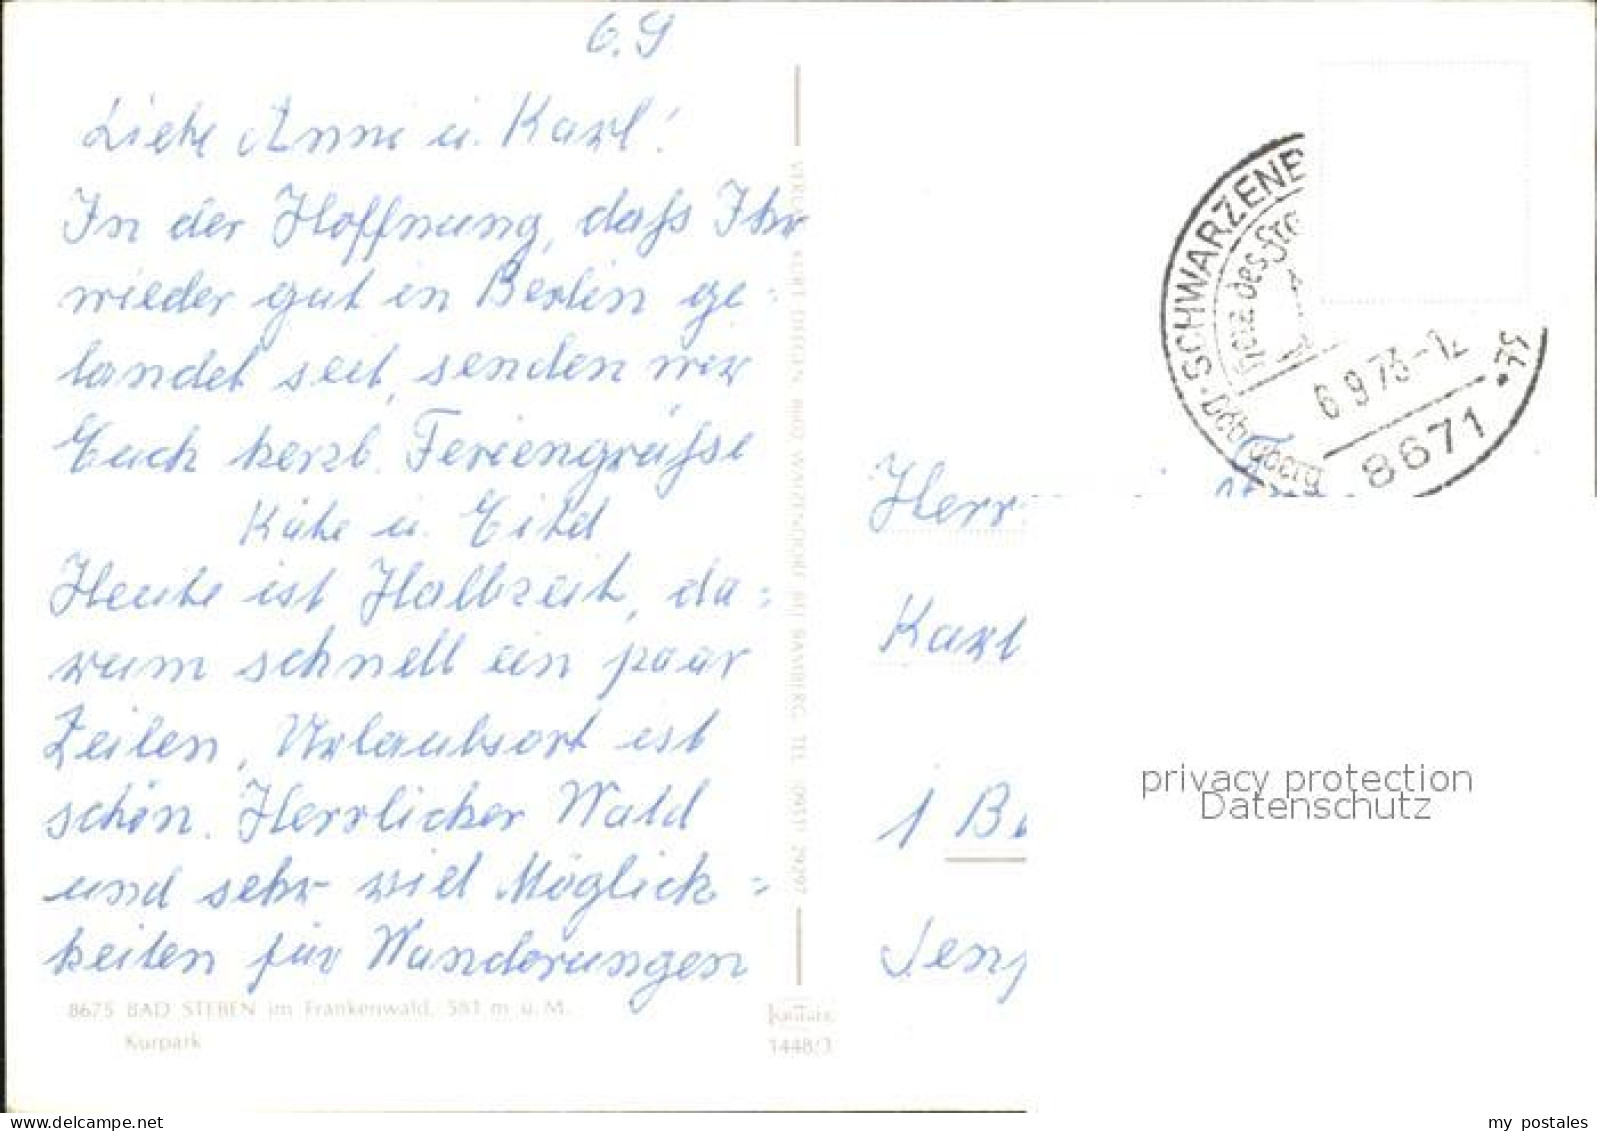 6.9
Liebe Anni u. Karl!
In der Hoffnung, daß Ihr
wieder gut in Berlin ge=
landet seit, senden wir
Euch herzl. Feriengrüße
Käthe u.
Heute ist Halbzeit, da=
rum schnell ein paar
Zeilen, Urlaubsort ist
schön. Herrlicher Wald
und sehr viel Möglich=
keiten für Wanderungen
8675 BAD STEBEN im Frankenwald, 581 m ü. M.
Kurpark
VERLAG KURT DIEGEL 8602 WEIZENDORF BEI BAMBERG, TEL. (0951) 29297
1448/3
SCHWARZENB
des
6.9.73-12
8671
Döbraberg
Herrn
Karl
1 B
privacy protection
Datenschutz
my postales
delcampe.net